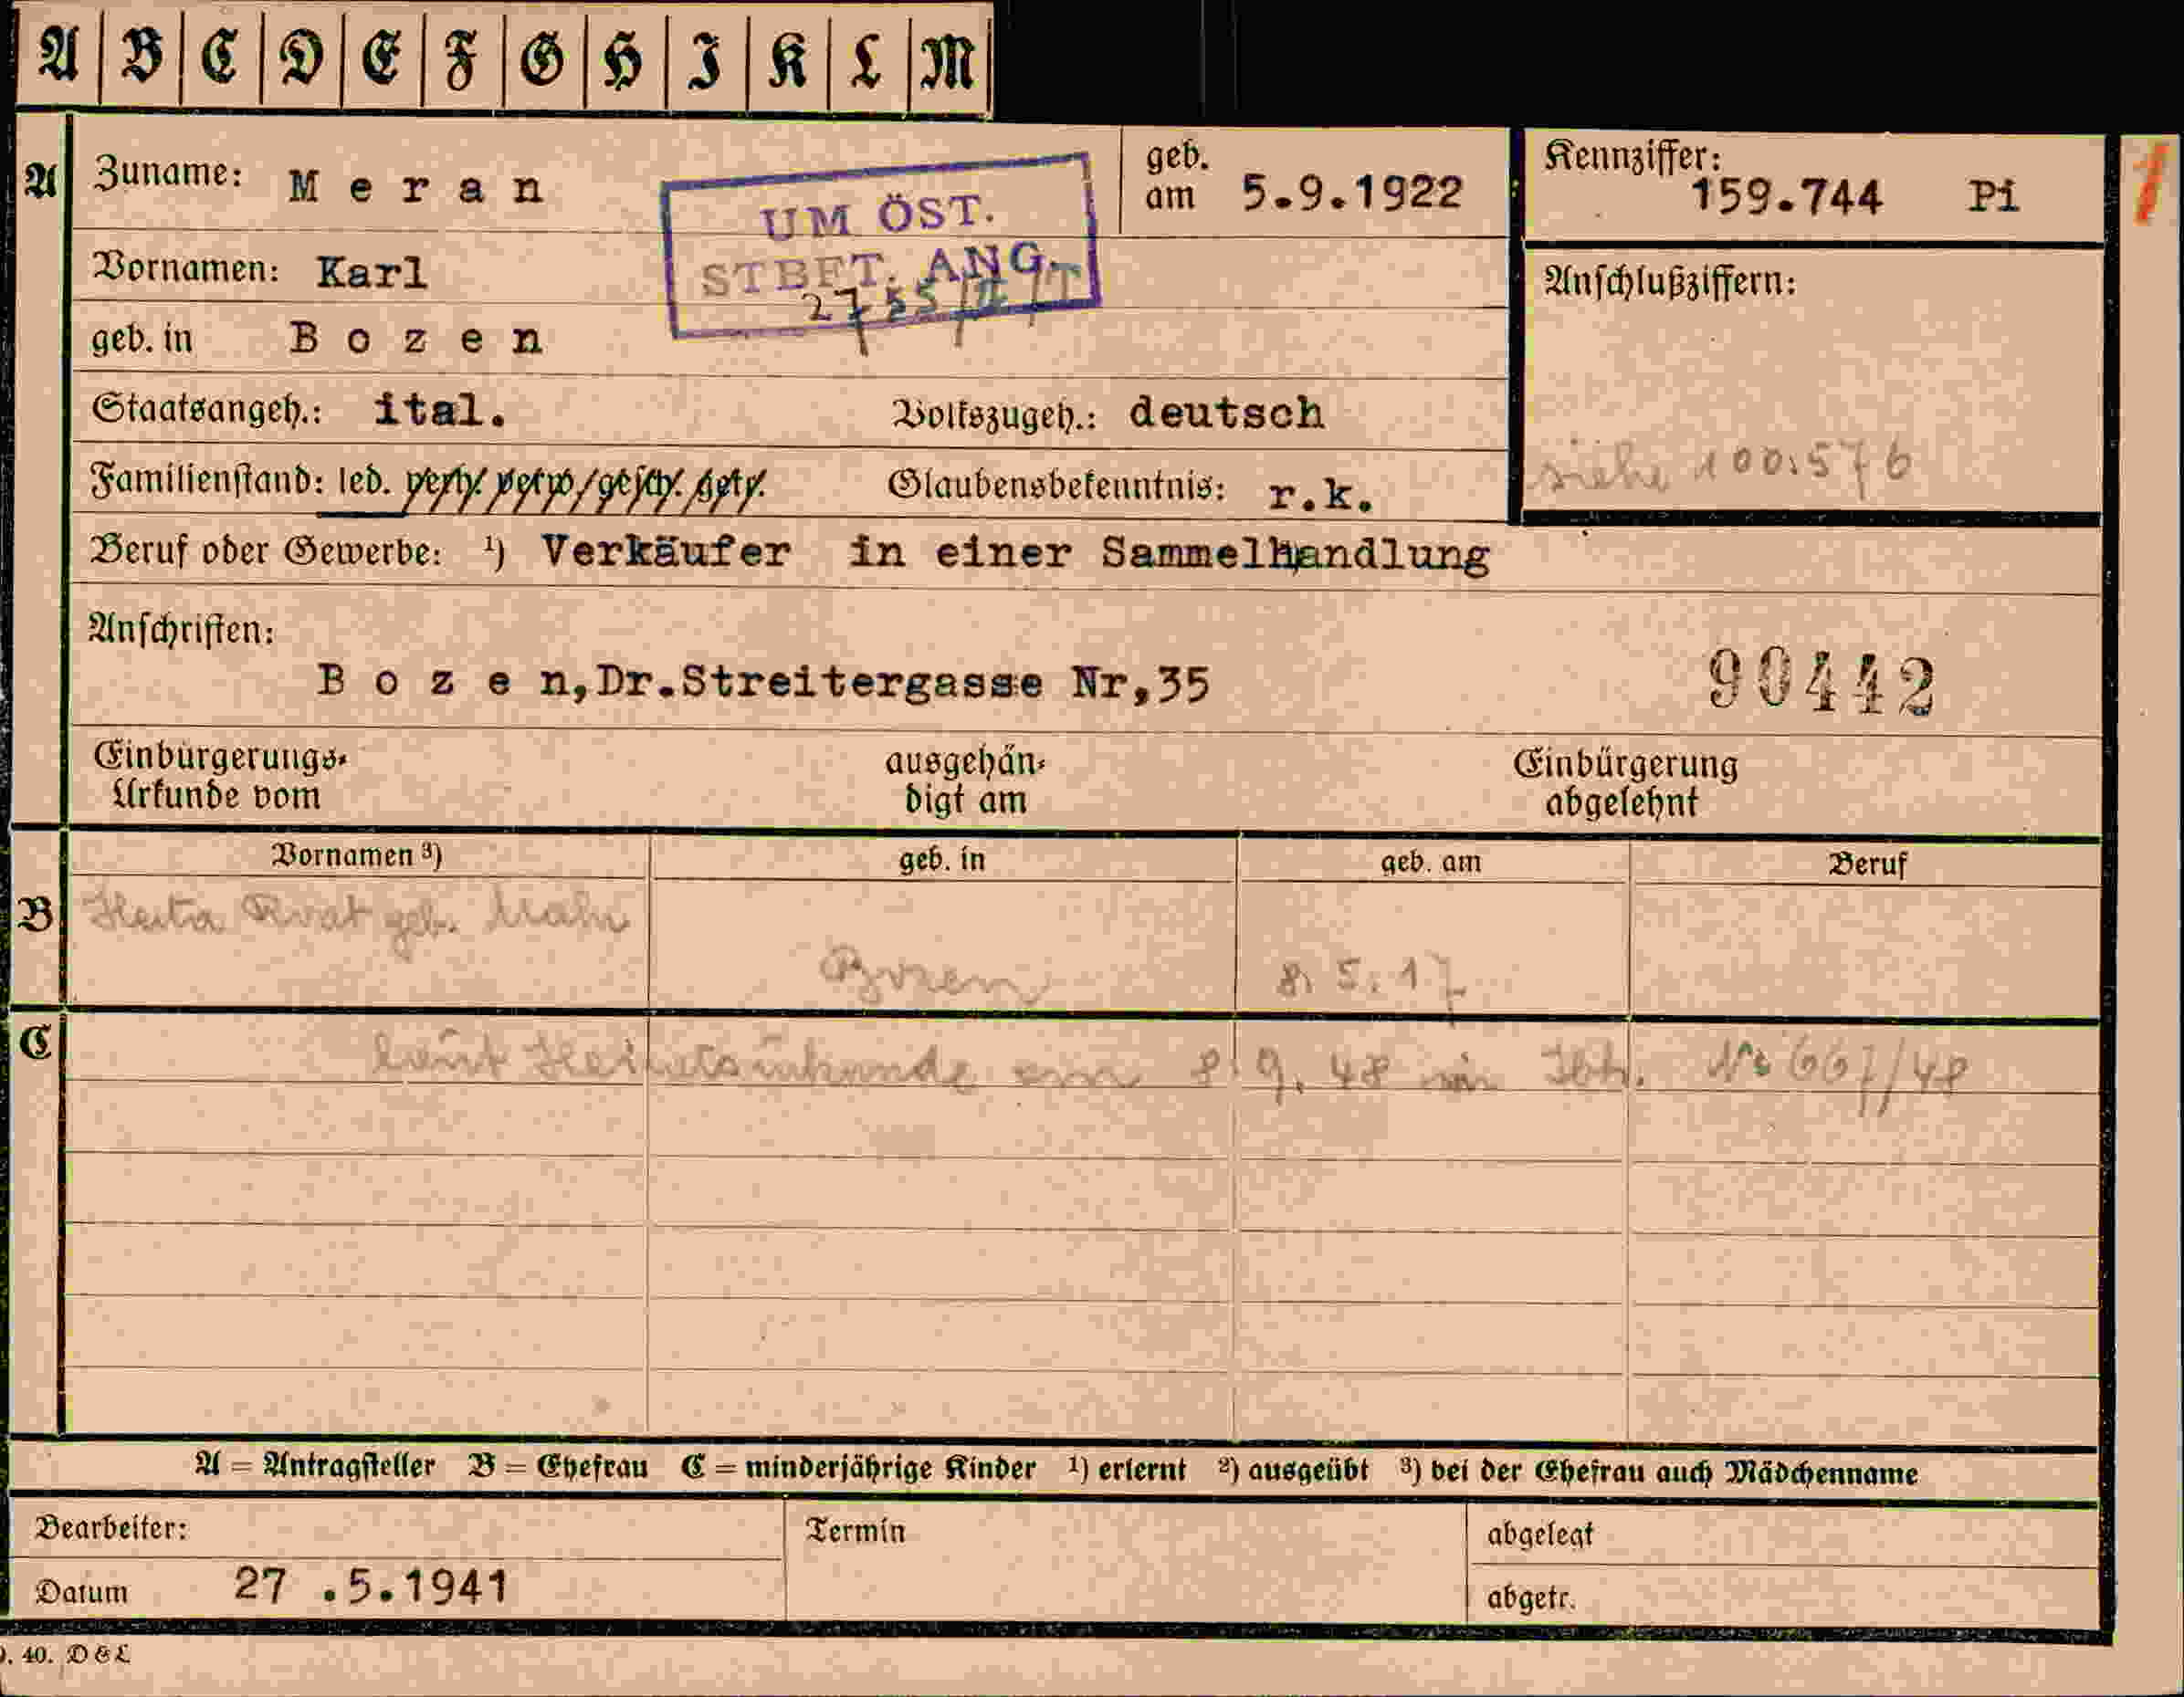 A B C D E F G H I K L M
A Zuname: Meran
geb. am 5.9.1922
Kennziffer: 159.744 Pi
1
UM ÖST.
STBET. ANG.
2755/II/T
Vornamen: Karl
Anschlußziffern:
geb. in Bozen
Staatsangeh.: ital. Volkszugeh.: deutsch
siehe 100.576
Familienstand: led. verh. verw. gesch. getr. Glaubensbekenntnis: r.k.
Beruf oder Gewerbe: ¹) Verkäufer in einer Sammelhandlung
Anschriften:
Bozen, Dr.Streitergasse Nr,35
90442
Einbürgerungs-
Urkunde vom
ausgehän-
digt am
Einbürgerung
abgelehnt
Vornamen ³) geb. in geb. am Beruf
B Herta Rvat geb.
Bozen 8. 5. 17
C laut Heiratsurkunde am 8. 9. 48 in Ibk. Nr 667/48
A = Antragsteller B = Ehefrau C = minderjährige Kinder ¹) erlernt ²) ausgeübt ³) bei der Ehefrau auch Mädchenname
Bearbeiter: Termin abgelegt
Datum 27 .5.1941 abgetr.
40. D & L